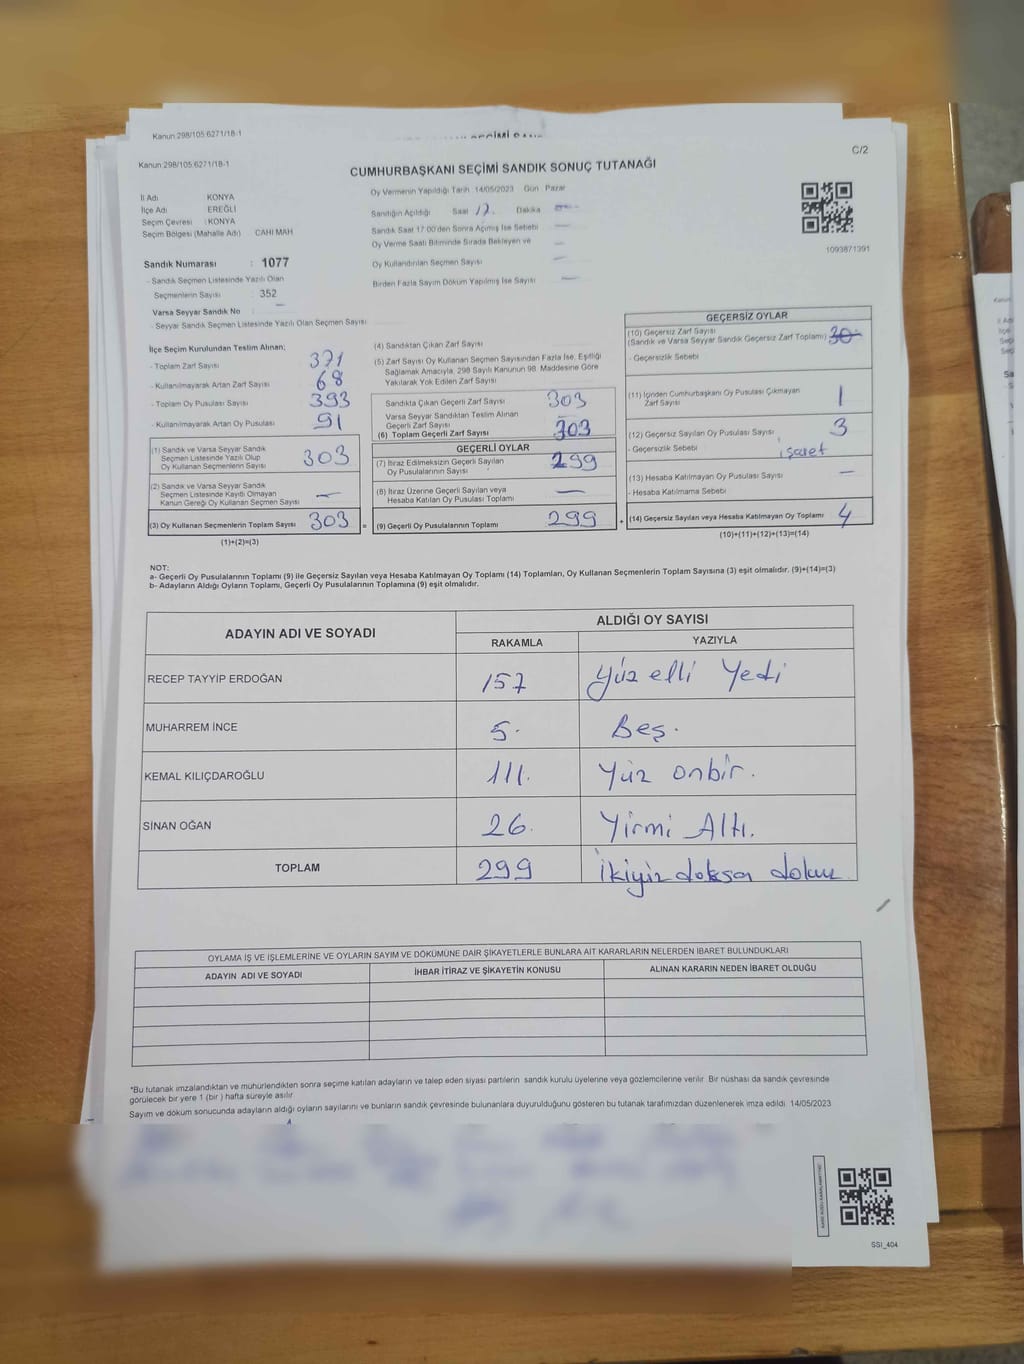 Kanun:298/105.6271/18-1
Kanun:298/105.6271/18-1
C/2
CUMHURBAŞKANI SEÇİMİ SANDIK SONUÇ TUTANAĞI
İl Adı KONYA
İlçe Adı EREĞLİ
Seçim Çevresi : KONYA
Seçim Bölgesi (Mahalle Adı) CAHI MAH
Oy Vermenin Yapıldığı Tarih 14/05/2023 Gün Pazar
Sandığın Açıldığı Saat 17. Dakika —
Sandık Saat 17.00'den Sonra Açılmış İse Sebebi —
Oy Verme Saati Bitiminde Sırada Bekleyen ve
Oy Kullandırılan Seçmen Sayısı —
Birden Fazla Sayım Döküm Yapılmış İse Sayısı —
1093871391
Sandık Numarası : 1077
- Sandık Seçmen Listesinde Yazılı Olan
Seçmenlerin Sayısı : 352
Varsa Seyyar Sandık No : —
- Seyyar Sandık Seçmen Listesinde Yazılı Olan Seçmen Sayısı
İlçe Seçim Kurulundan Teslim Alınan;
- Toplam Zarf Sayısı 371
- Kullanılmayarak Artan Zarf Sayısı 68
- Toplam Oy Pusulası Sayısı 393
- Kullanılmayarak Artan Oy Pusulası 91
(1) Sandık ve Varsa Seyyar Sandık
Seçmen Listesinde Yazılı Olup
Oy Kullanan Seçmenlerin Sayısı 303
(2) Sandık ve Varsa Seyyar Sandık
Seçmen Listesinde Kayıtlı Olmayan
Kanun Gereği Oy Kullanan Seçmen Sayısı —
(3) Oy Kullanan Seçmenlerin Toplam Sayısı 303 =
(1)+(2)=(3)
(4) Sandıktan Çıkan Zarf Sayısı
(5) Zarf Sayısı Oy Kullanan Seçmen Sayısından Fazla İse, Eşitliği
Sağlamak Amacıyla, 298 Sayılı Kanunun 98. Maddesine Göre
Yakılarak Yok Edilen Zarf Sayısı
Sandıkta Çıkan Geçerli Zarf Sayısı 303
Varsa Seyyar Sandıktan Teslim Alınan
Geçerli Zarf Sayısı
(6) Toplam Geçerli Zarf Sayısı 303
GEÇERLİ OYLAR
(7) İtiraz Edilmeksizin Geçerli Sayılan
Oy Pusulalarının Sayısı 299
(8) İtiraz Üzerine Geçerli Sayılan veya
Hesaba Katılan Oy Pusulası Toplamı —
(9) Geçerli Oy Pusulalarının Toplamı 299 +
GEÇERSİZ OYLAR
(10) Geçersiz Zarf Sayısı
(Sandık ve Varsa Seyyar Sandık Geçersiz Zarf Toplamı) 30
- Geçersizlik Sebebi
(11) İçinden Cumhurbaşkanı Oy Pusulası Çıkmayan
Zarf Sayısı 1
(12) Geçersiz Sayılan Oy Pusulası Sayısı 3
- Geçersizlik Sebebi işaret
(13) Hesaba Katılmayan Oy Pusulası Sayısı —
- Hesaba Katılmama Sebebi
(14) Geçersiz Sayılan veya Hesaba Katılmayan Oy Toplamı 4
(10)+(11)+(12)+(13)=(14)
NOT:
a- Geçerli Oy Pusulalarının Toplamı (9) ile Geçersiz Sayılan veya Hesaba Katılmayan Oy Toplamı (14) Toplamları, Oy Kullanan Seçmenlerin Toplam Sayısına (3) eşit olmalıdır. (9)+(14)=(3)
b- Adayların Aldığı Oyların Toplamı, Geçerli Oy Pusulalarının Toplamına (9) eşit olmalıdır.
ADAYIN ADI VE SOYADI
ALDIĞI OY SAYISI
RAKAMLA YAZIYLA
RECEP TAYYİP ERDOĞAN 157 Yüz elli Yedi
MUHARREM İNCE 5. Beş.
KEMAL KILIÇDAROĞLU 111. Yüz onbir.
SİNAN OĞAN 26. Yirmi Altı.
TOPLAM 299 ikiyüz doksan dokuz
OYLAMA İŞ VE İŞLEMLERİNE VE OYLARIN SAYIM VE DÖKÜMÜNE DAİR ŞİKAYETLERLE BUNLARA AİT KARARLARIN NELERDEN İBARET BULUNDUKLARI
ADAYIN ADI VE SOYADI İHBAR İTİRAZ VE ŞİKAYETİN KONUSU ALINAN KARARIN NEDEN İBARET OLDUĞU
*Bu tutanak imzalandıktan ve mühürlendikten sonra seçime katılan adayların ve talep eden siyasi partilerin sandık kurulu üyelerine veya gözlemcilerine verilir. Bir nüshası da sandık çevresinde
görülecek bir yere 1 (bir ) hafta süreyle asılır
Sayım ve döküm sonucunda adayların aldığı oyların sayılarını ve bunların sandık çevresinde bulunanlara duyurulduğunu gösteren bu tutanak tarafımızdan düzenlenerek imza edildi. 14/05/2023
SSI_404